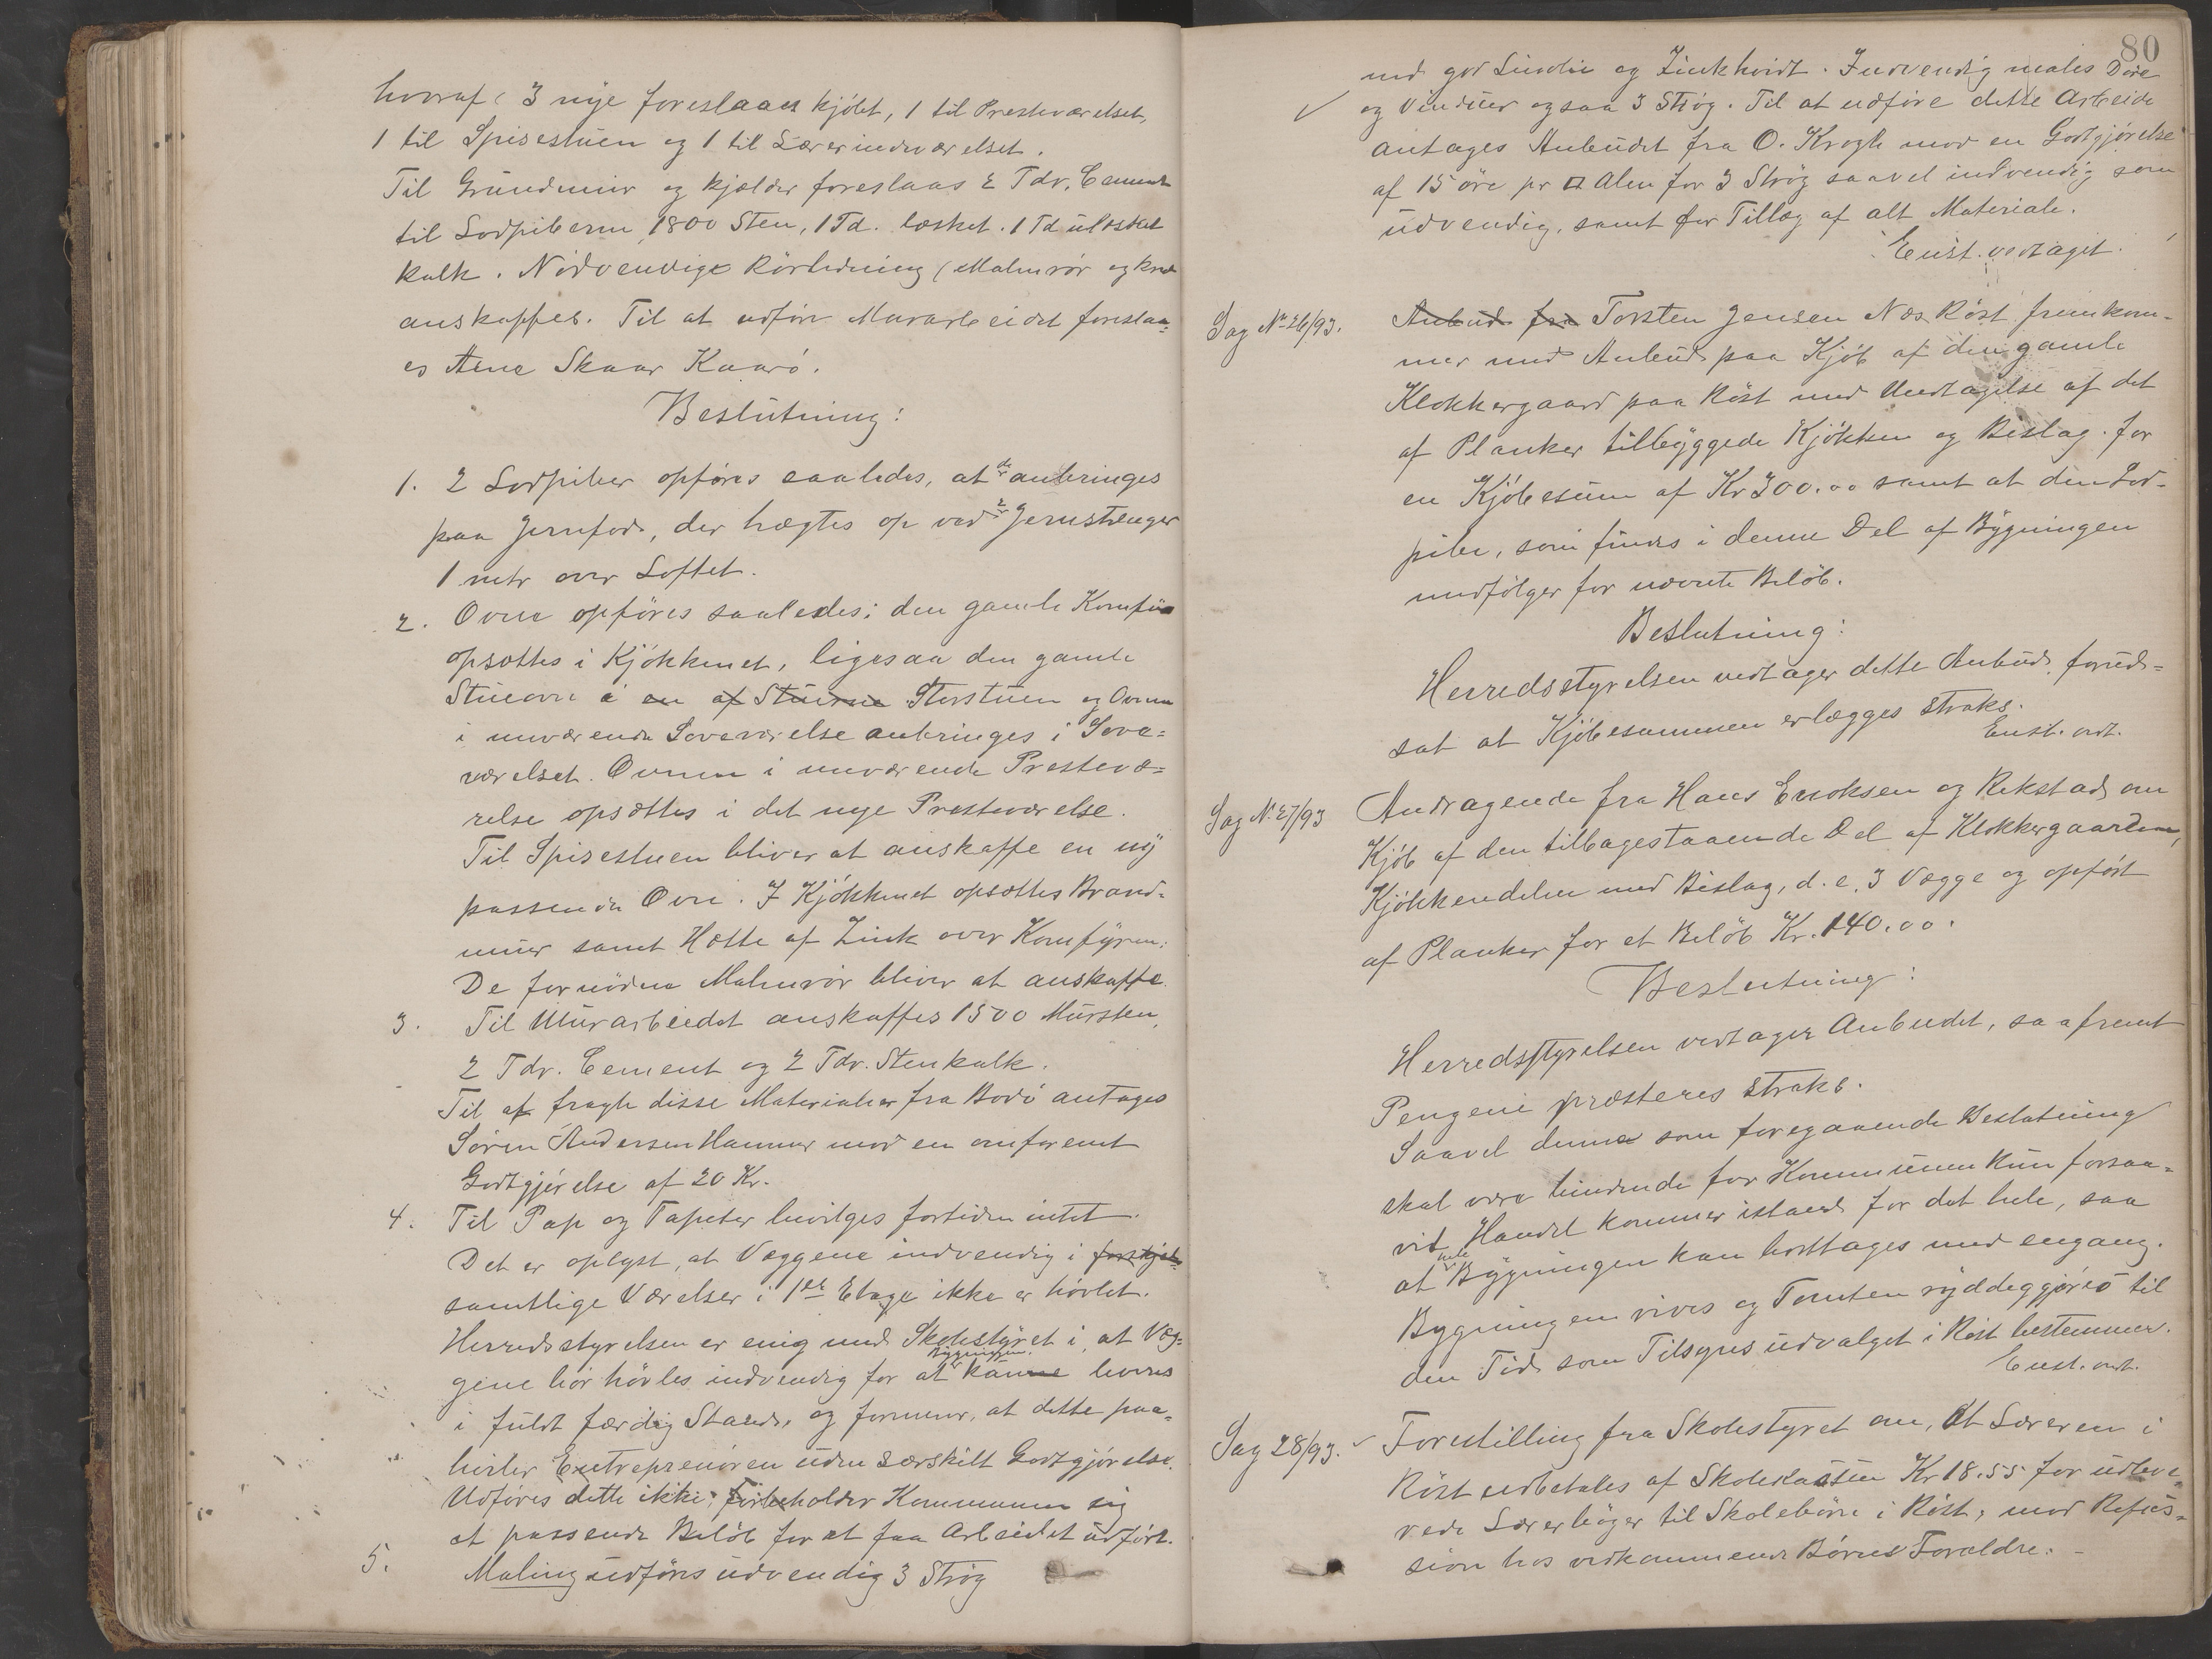 hvoraf 3 nye foreslaaes kjöbt, 1 til Presteværelset,
1 til Spisestuen og 1 til Lærerindeværelset.
Til Grundmur og kjælder foreslaas 2 Tdr. Cement
til Lodpiberne 1800 Sten, 1 Td. læsket. 1 Td ulæsket
kalk. Nödvendige Rörledning (Malmrör og knæ
anskaffes. Til at udföre Murarbeidet foreslaa-
es Arne Skaar Kaarö.
Beslutning:
1. 2 Lodpiber opföres saaledes, at de anbringes
paa Jernfod, der hægtes op ved 2 Jernstænger
1 metr over Loftet.
2. Ovne opföres saaledes: den gamle Komfür
opsættes i Kjökkenet, ligesaa den gamle
Stueovn i en af Stuerne Storstuen og Ovnen
i nuværende Soveværelse anbringes i Sove-
værelset. Ovnen i nuværende Prestevæ-
relse opsættes i det nye Presteværelse.
Til Spisestuen bliver at anskaffe en ny
passende Ovn. I Kjökkenet opsættes Brand-
muur samt Hætte af Zink over Komfyren.
De fornödne Malmrör bliver at anskaffe.
3. Til Murarbeidet anskaffes 1500 Mursten,
2 Tdr. Cement og 2 Tdr. Stenkalk.
Til at fragte disse Materialier fra Bodö antages
Sören Andersen Hammer mod en omforenet
Godtgjörelse af 20 Kr.
4. Til Pap og Tapeter bevilges fortiden intet.
Det er oplyst, at Væggene indvendig i forskjel-
samtlige Værelser i 1ste Etage ikke er hövlet.
Herredsstyrelsen er enig med Skolestyret i, at Væg-
gene bör hövles indvendig for at Bygningen kunne leveres
i fuldt færdig Stand, og formener, at dette paa-
hviler Entreprenören uden særskilt Godtgjörelse.
Udföres dette ikke, forbeholder Kommunen sig
et passende Belöb for at faa Arbeidet udfört.
5. Maling udföres udvendig 3 Strög
80
med god Linolie og Zinkhvidt. Indvendig males Döre
og Vinduer ogsaa 3 Strög. Til at udföre dette Arbeide
antages Anbudet fra O. Krogh mod en Godtgjörelse
af 15 öre pr □ Alen for 3 Strög saavel indvendig som
udvendig, samt for Tillæg af alt Materiale.
Enst. vedtaget.
Sag No 26/93. Anbud fra Torsten Jensen Nes Röst fremkom-
mer med Anbud paa Kjöb af den gamle
Klokkergaard paa Röst med Undtagelse af det
af Planker tilbyggede Kjökken og Bislag. for
en Kjöbesum af Kr 300.00 samt at den Lod-
pibe, som findes i denne Del af Bygningen
medfölger for nævnte Belöb.
Beslutning:
Herredsstyrelsen vedtager dette Anbud, forud-
sat at Kjöbesummen erlægges straks.
Enst. vedt.
Sag No 27/93 Andragende fra Hans Enoksen og Rekstad om
Kjöb af den tilbagestaaende Del af Klokkergaarden,
Kjökkendelen med Bislag, d. e. 3 Vægge og opfört
af Planker for et Belöb Kr. 140.00.
Beslutning:
Herredsstyrelsen vedtager Anbudet, saafremt
Pengene præsteres straks.
Saavel denne som foregaaende Beslutning
skal være bindende for Kommunen kun forsaa-
vidt Handel kommer istand for det hele, saa
at hele Bygningen kan borttages med engang.
Bygningen rives og Tomten ryddeggjöres til
den Tid som Tilsynsudvalget i Röst bestemmer.
Enst. vedt.
Sag 28/93. Forestilling fra Skolestyret om, at Læreren i
Röst udbetales af Skolekassen Kr 18.55 for udleve-
rede Lærebøger til Skolebörn i Röst, mod Refu-
sion hos vedkommende Börns Foraldre.